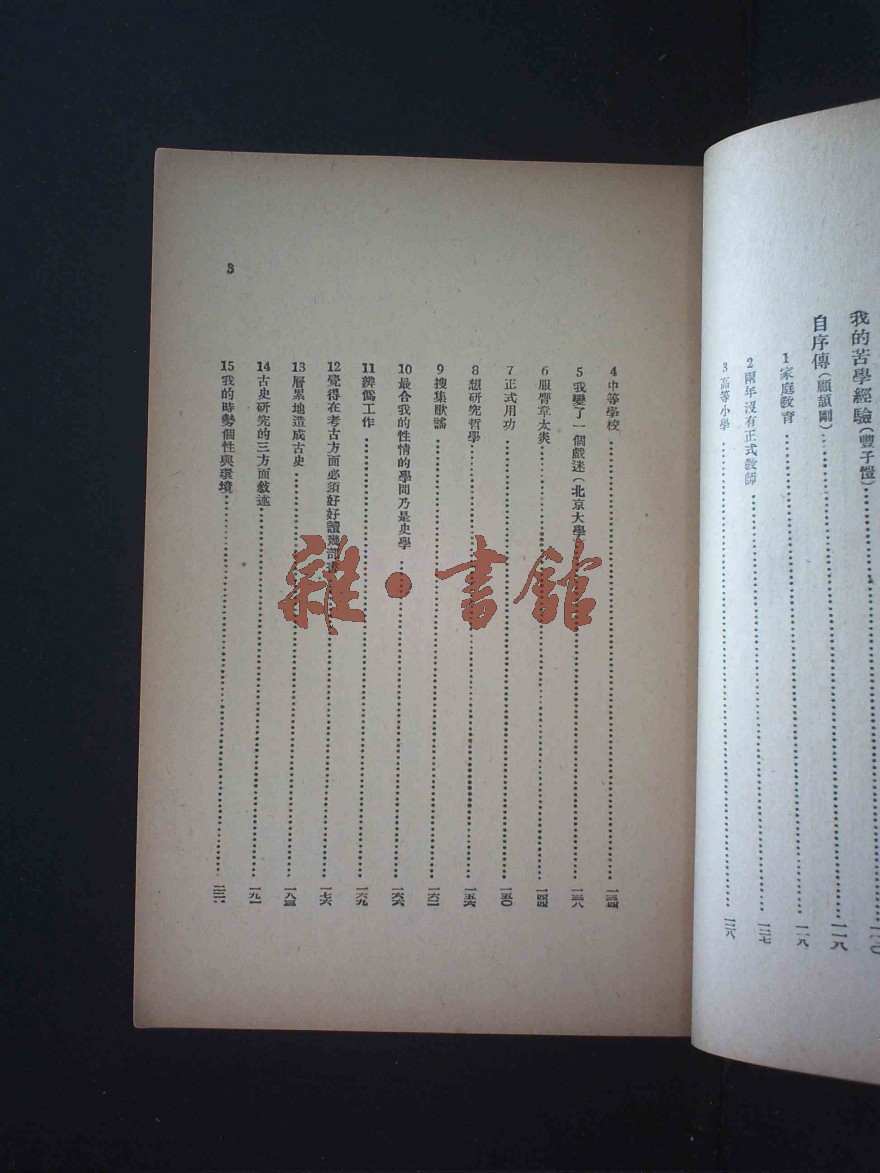 我的苦學經驗(豐子愷)
自序傳(顧頡剛)……一一八
1 家庭教育……一一八
2 兩年沒有正式教師……一二七
3 高等小學……一二八
4 中等學校……一三四
5 我變了一個戲迷(北京大學……一三八
6 服膺章太炎……一四四
7 正式用功……一五〇
8 想研究哲學……一五六
9 搜集歌謠……一六二
10 最合我的性情的學問乃是史學……一六六
11 辨僞工作……一六九
12 覺得在考古方面必須好好讀幾部書……一七六
13 層累地造成古史……一八三
14 古史研究的三方面敘述……一九一
15 我的時勢個性與環境
3
雜·書館